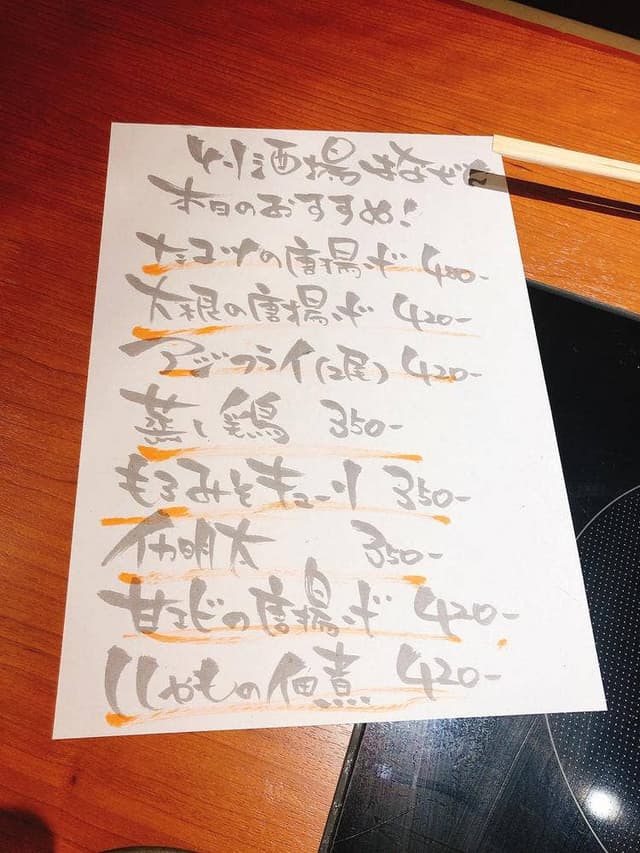 酒場はなぜた
本日のおすすめ!
の唐揚げ 480-
大根の唐揚げ 420-
アジフライ(2尾) 420-
蒸し鶏 350-
もろみそキューリ 350-
イカ明太 350-
甘エビの唐揚げ 420-
ししゃもの佃煮 420-